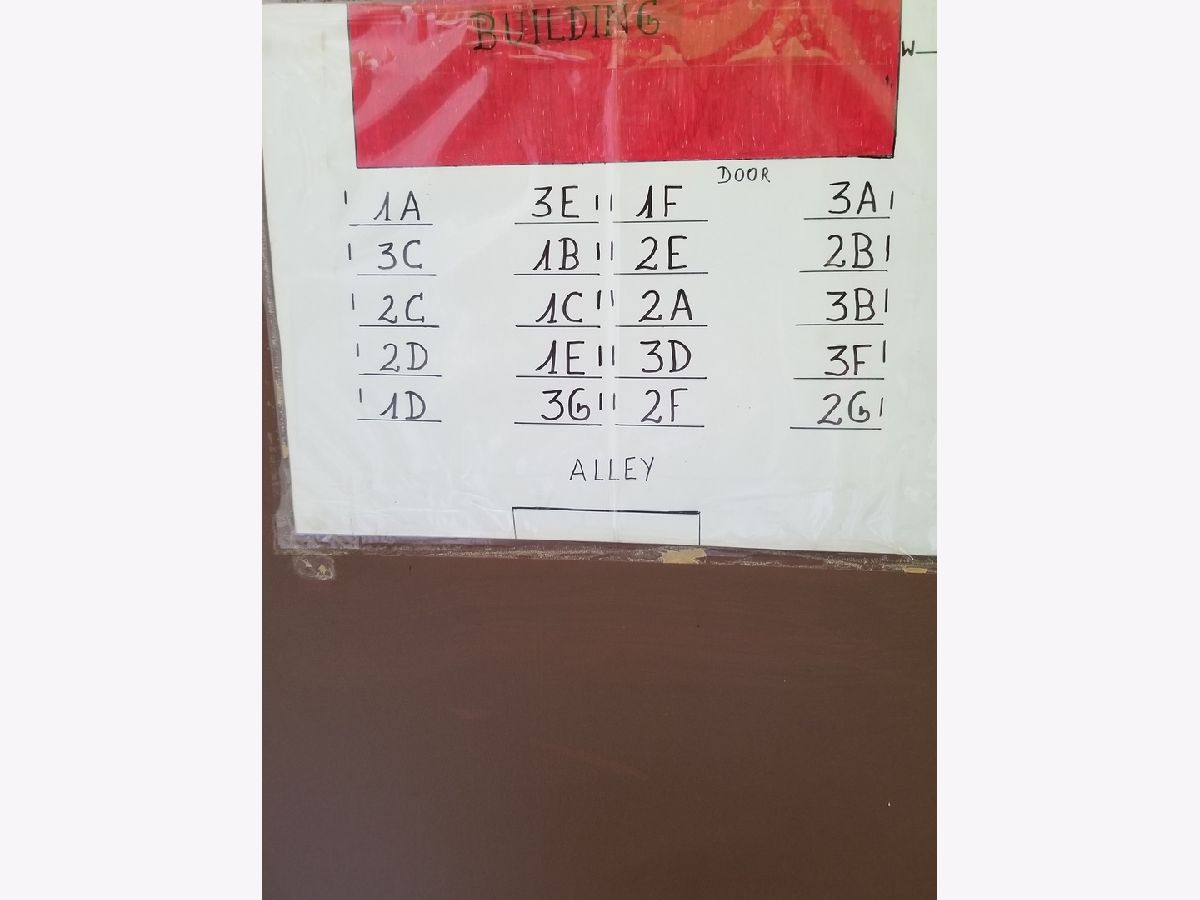 BUILDING
W
DOOR
1A 3E 1F 3A
3C 1B 2E 2B
2C 1C 2A 3B
2D 1E 3D 3F
1D 3G 2F 2G
ALLEY